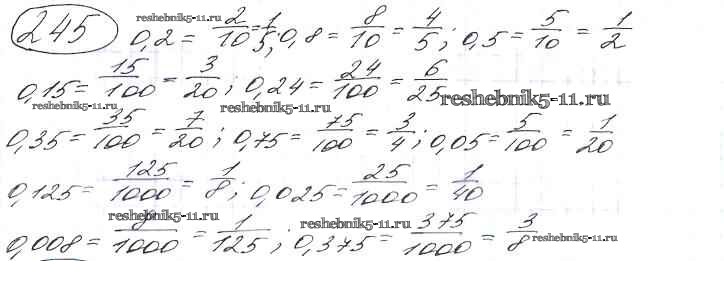 reshebnik5-11.ru
245 0,2 = 2/10 = 1/5; 0,8 = 8/10 = 4/5; 0,5 = 5/10 = 1/2
0,15 = 15/100 = 3/20; 0,24 = 24/100 = 6/25
reshebnik5-11.ru reshebnik5-11.ru reshebnik5-11.ru
0,35 = 35/100 = 7/20; 0,75 = 75/100 = 3/4; 0,05 = 5/100 = 1/20
0,125 = 125/1000 = 1/8; 0,025 = 25/1000 = 1/40
reshebnik5-11.ru reshebnik5-11.ru reshebnik5-11.ru
0,008 = 8/1000 = 1/125; 0,375 = 375/1000 = 3/8